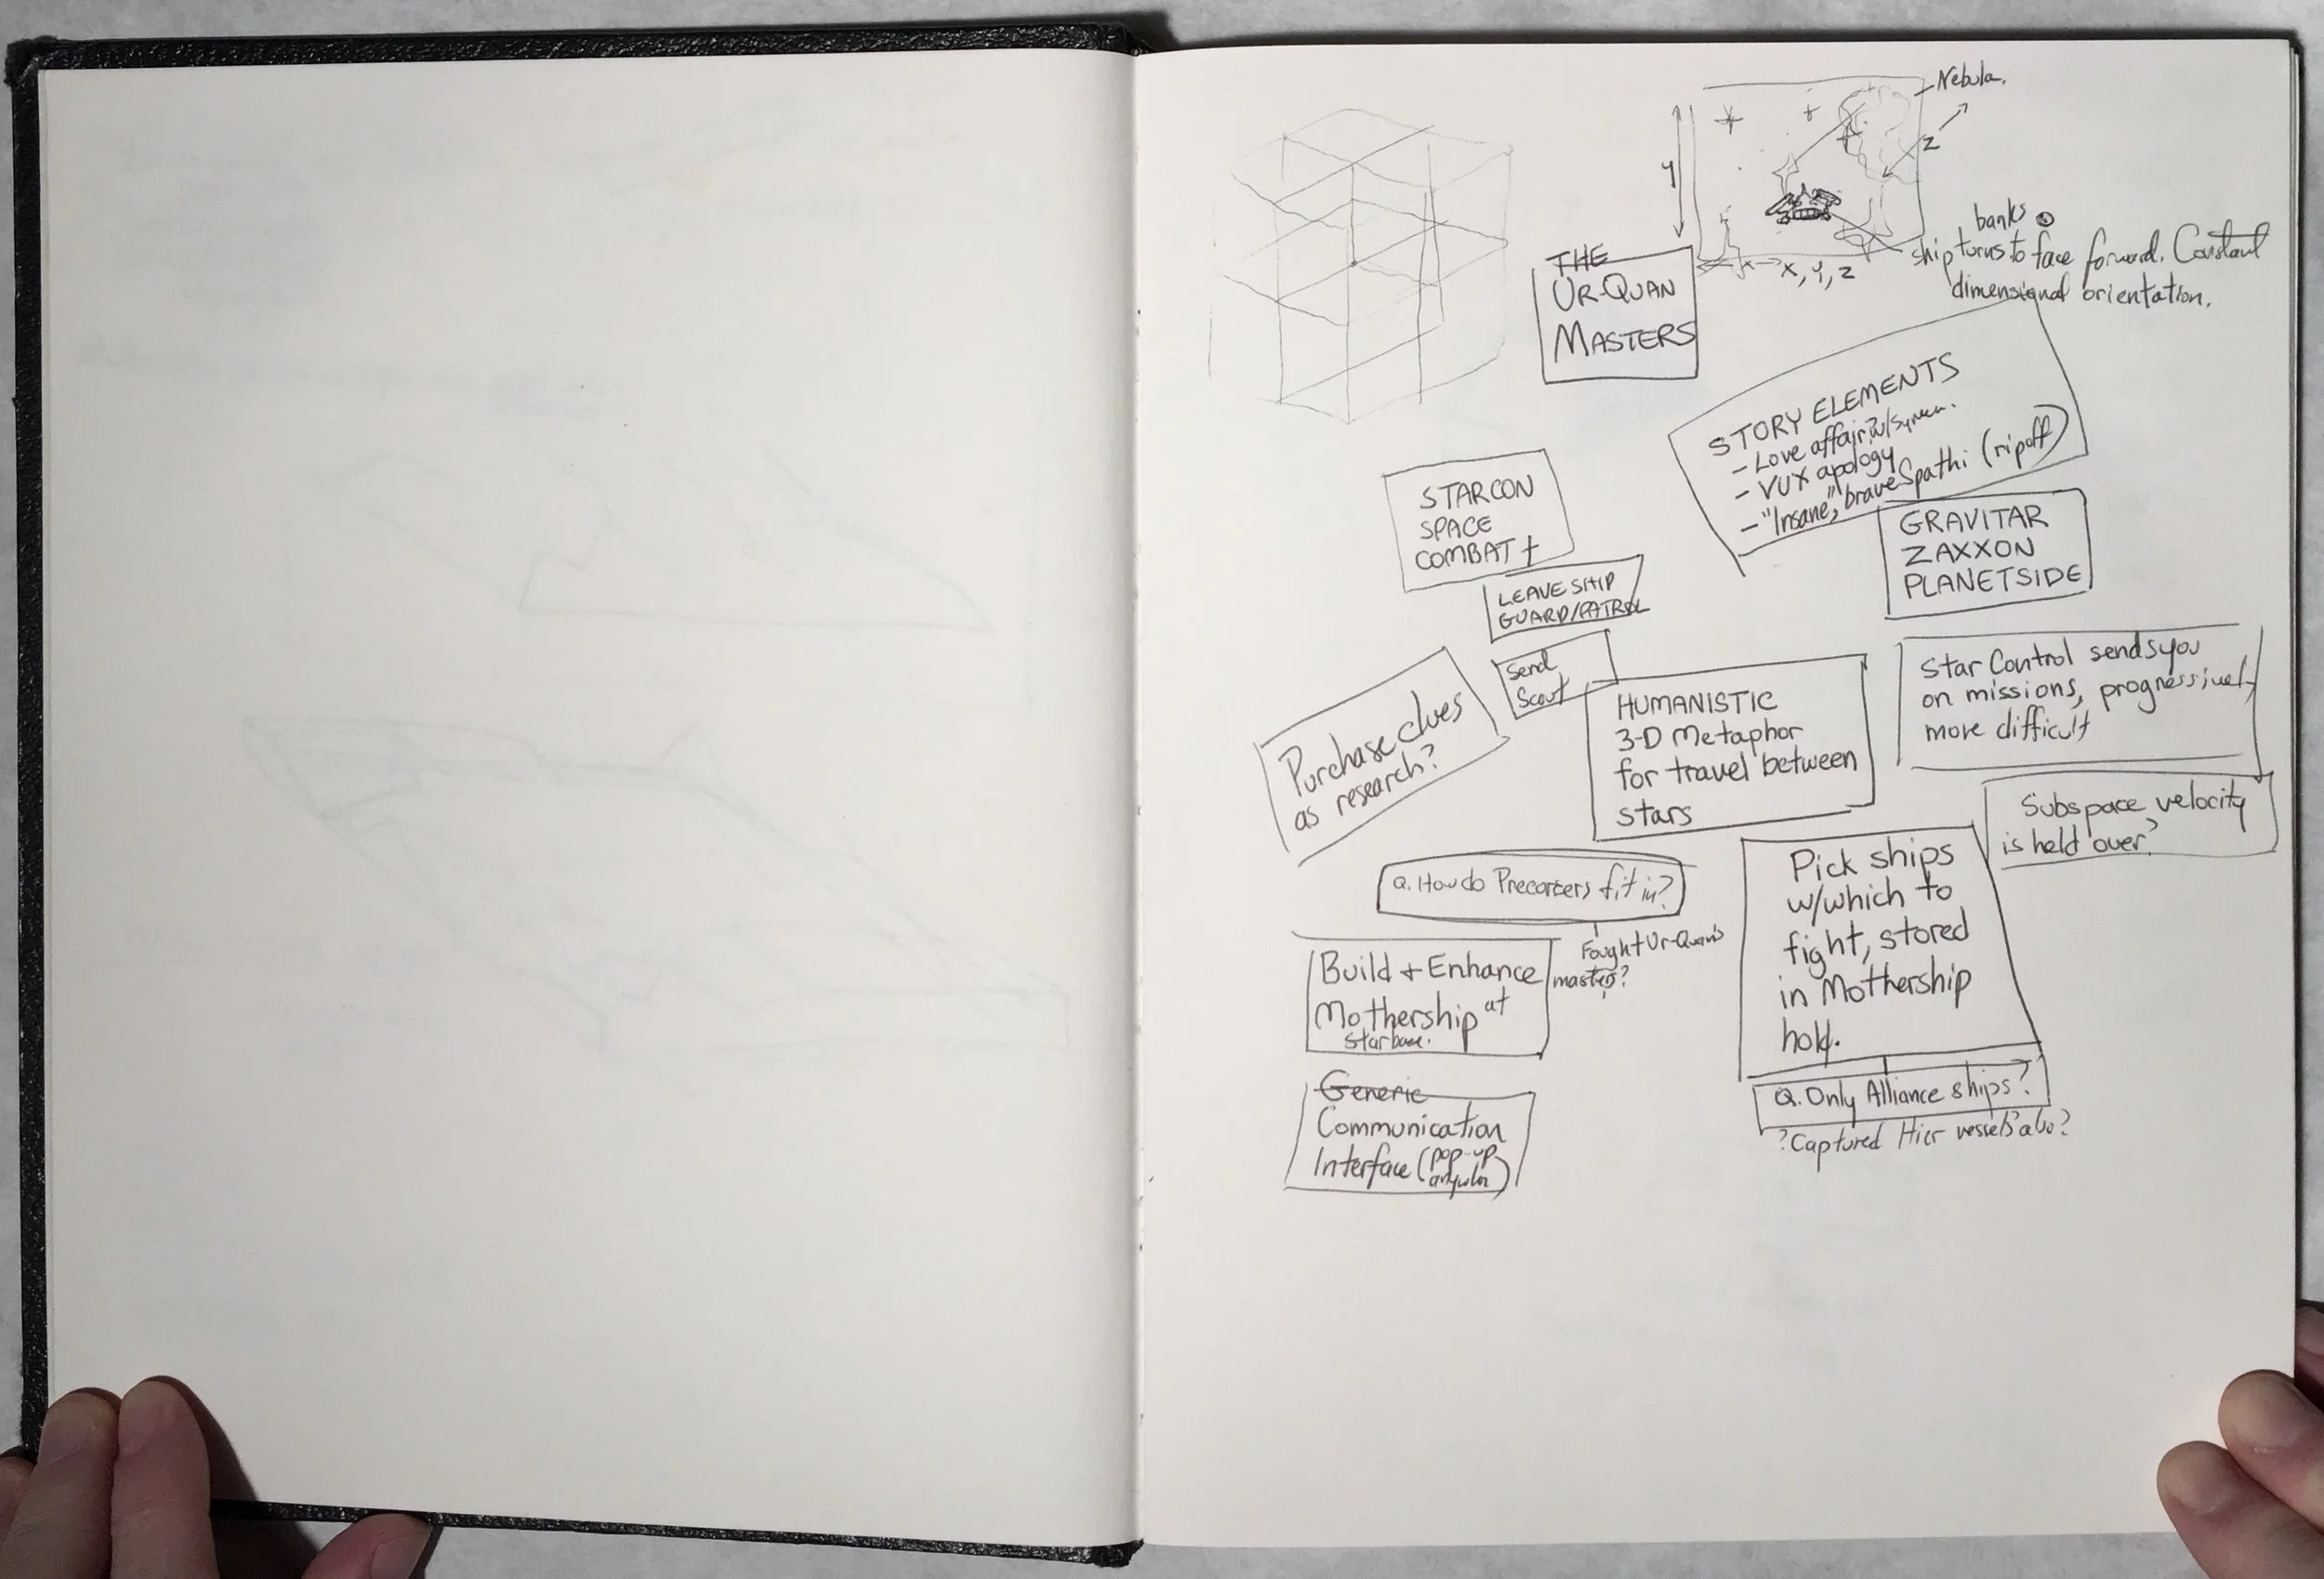 Nebula.
Y
Z
X
X, Y, Z
banks
ship turns to face forward. Constant
dimensional orientation.
THE
UR-QUAN
MASTERS
STORY ELEMENTS
- Love affair? w/Syreen.
- VUX apology
- "Insane," brave Spathi (ripoff)
STARCON
SPACE
COMBAT +
LEAVE SHIP
GUARD/PATROL
GRAVITAR
ZAXXON
PLANETSIDE
Send
Scout
Purchase clues
as research?
HUMANISTIC
3-D Metaphor
for travel between
stars
Star Control sends you
on missions, progressively
more difficult
Subspace velocity
is held over?
Q. How do Precorsers fit in?
Fought Ur-Quan's
masters?
Build + Enhance
Mothership at
Starbase.
Pick ships
w/which to
fight, stored
in Mothership
hold.
Q. Only Alliance ships?
?Captured Hier vessels also?
Generic
Communication
Interface (pop-up
angular)